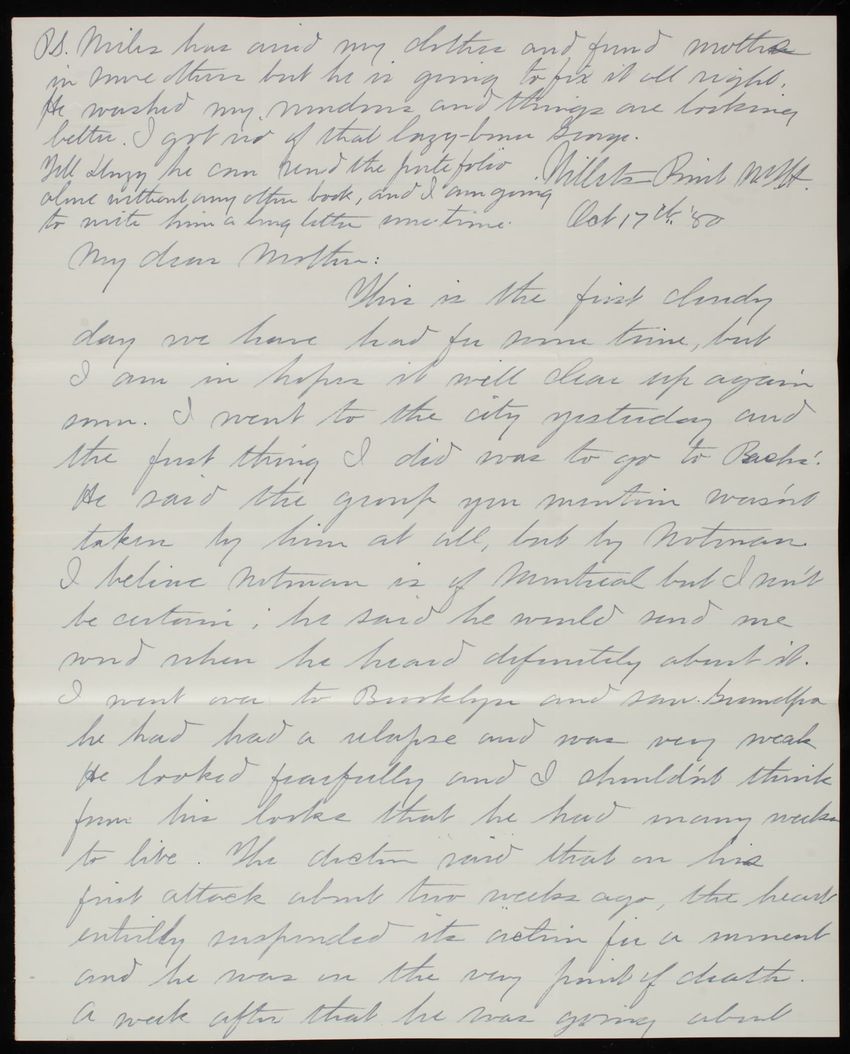 P.S. Miles has aired my clothes and found moths
in some others but he is going to fix it all right.
He washed my windows and things are looking
better. I got rid of that lazy-bones George.
Tell Harry he can send the portefolio
alone without any other book, and I am going
to write him a long letter sometime.
Willets Point N.Y.H.
Oct 17th '80
My dear Mother:
This is the first cloudy
day we have had for some time, but
I am in hopes it will clear up again
soon. I went to the city yesterday and
the first thing I did was to go to Bachs'.
He said the group you mention wasn't
taken by him at all, but by Notman.
I believe Notman is of Montreal but I won't
be certain; he said he would send me
word when he heard definitely about it.
I went over to Brooklyn and saw Grandpa
he had had a relapse and was very weak
He looked fearfully and I shouldn't think
from his looks that he had many weeks
to live. The doctor said that on his
first attack about two weeks ago, the heart
entirely suspended its action for a moment
and he was on the very point of death.
A week after that he was going about